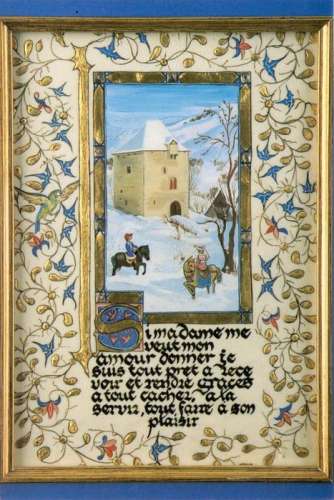 Si madame me
veut mon
amour donner je
suis tout pret a rece
voir et rendre graces
a tout cacher, a la
servir, tout faire a son
plaisir